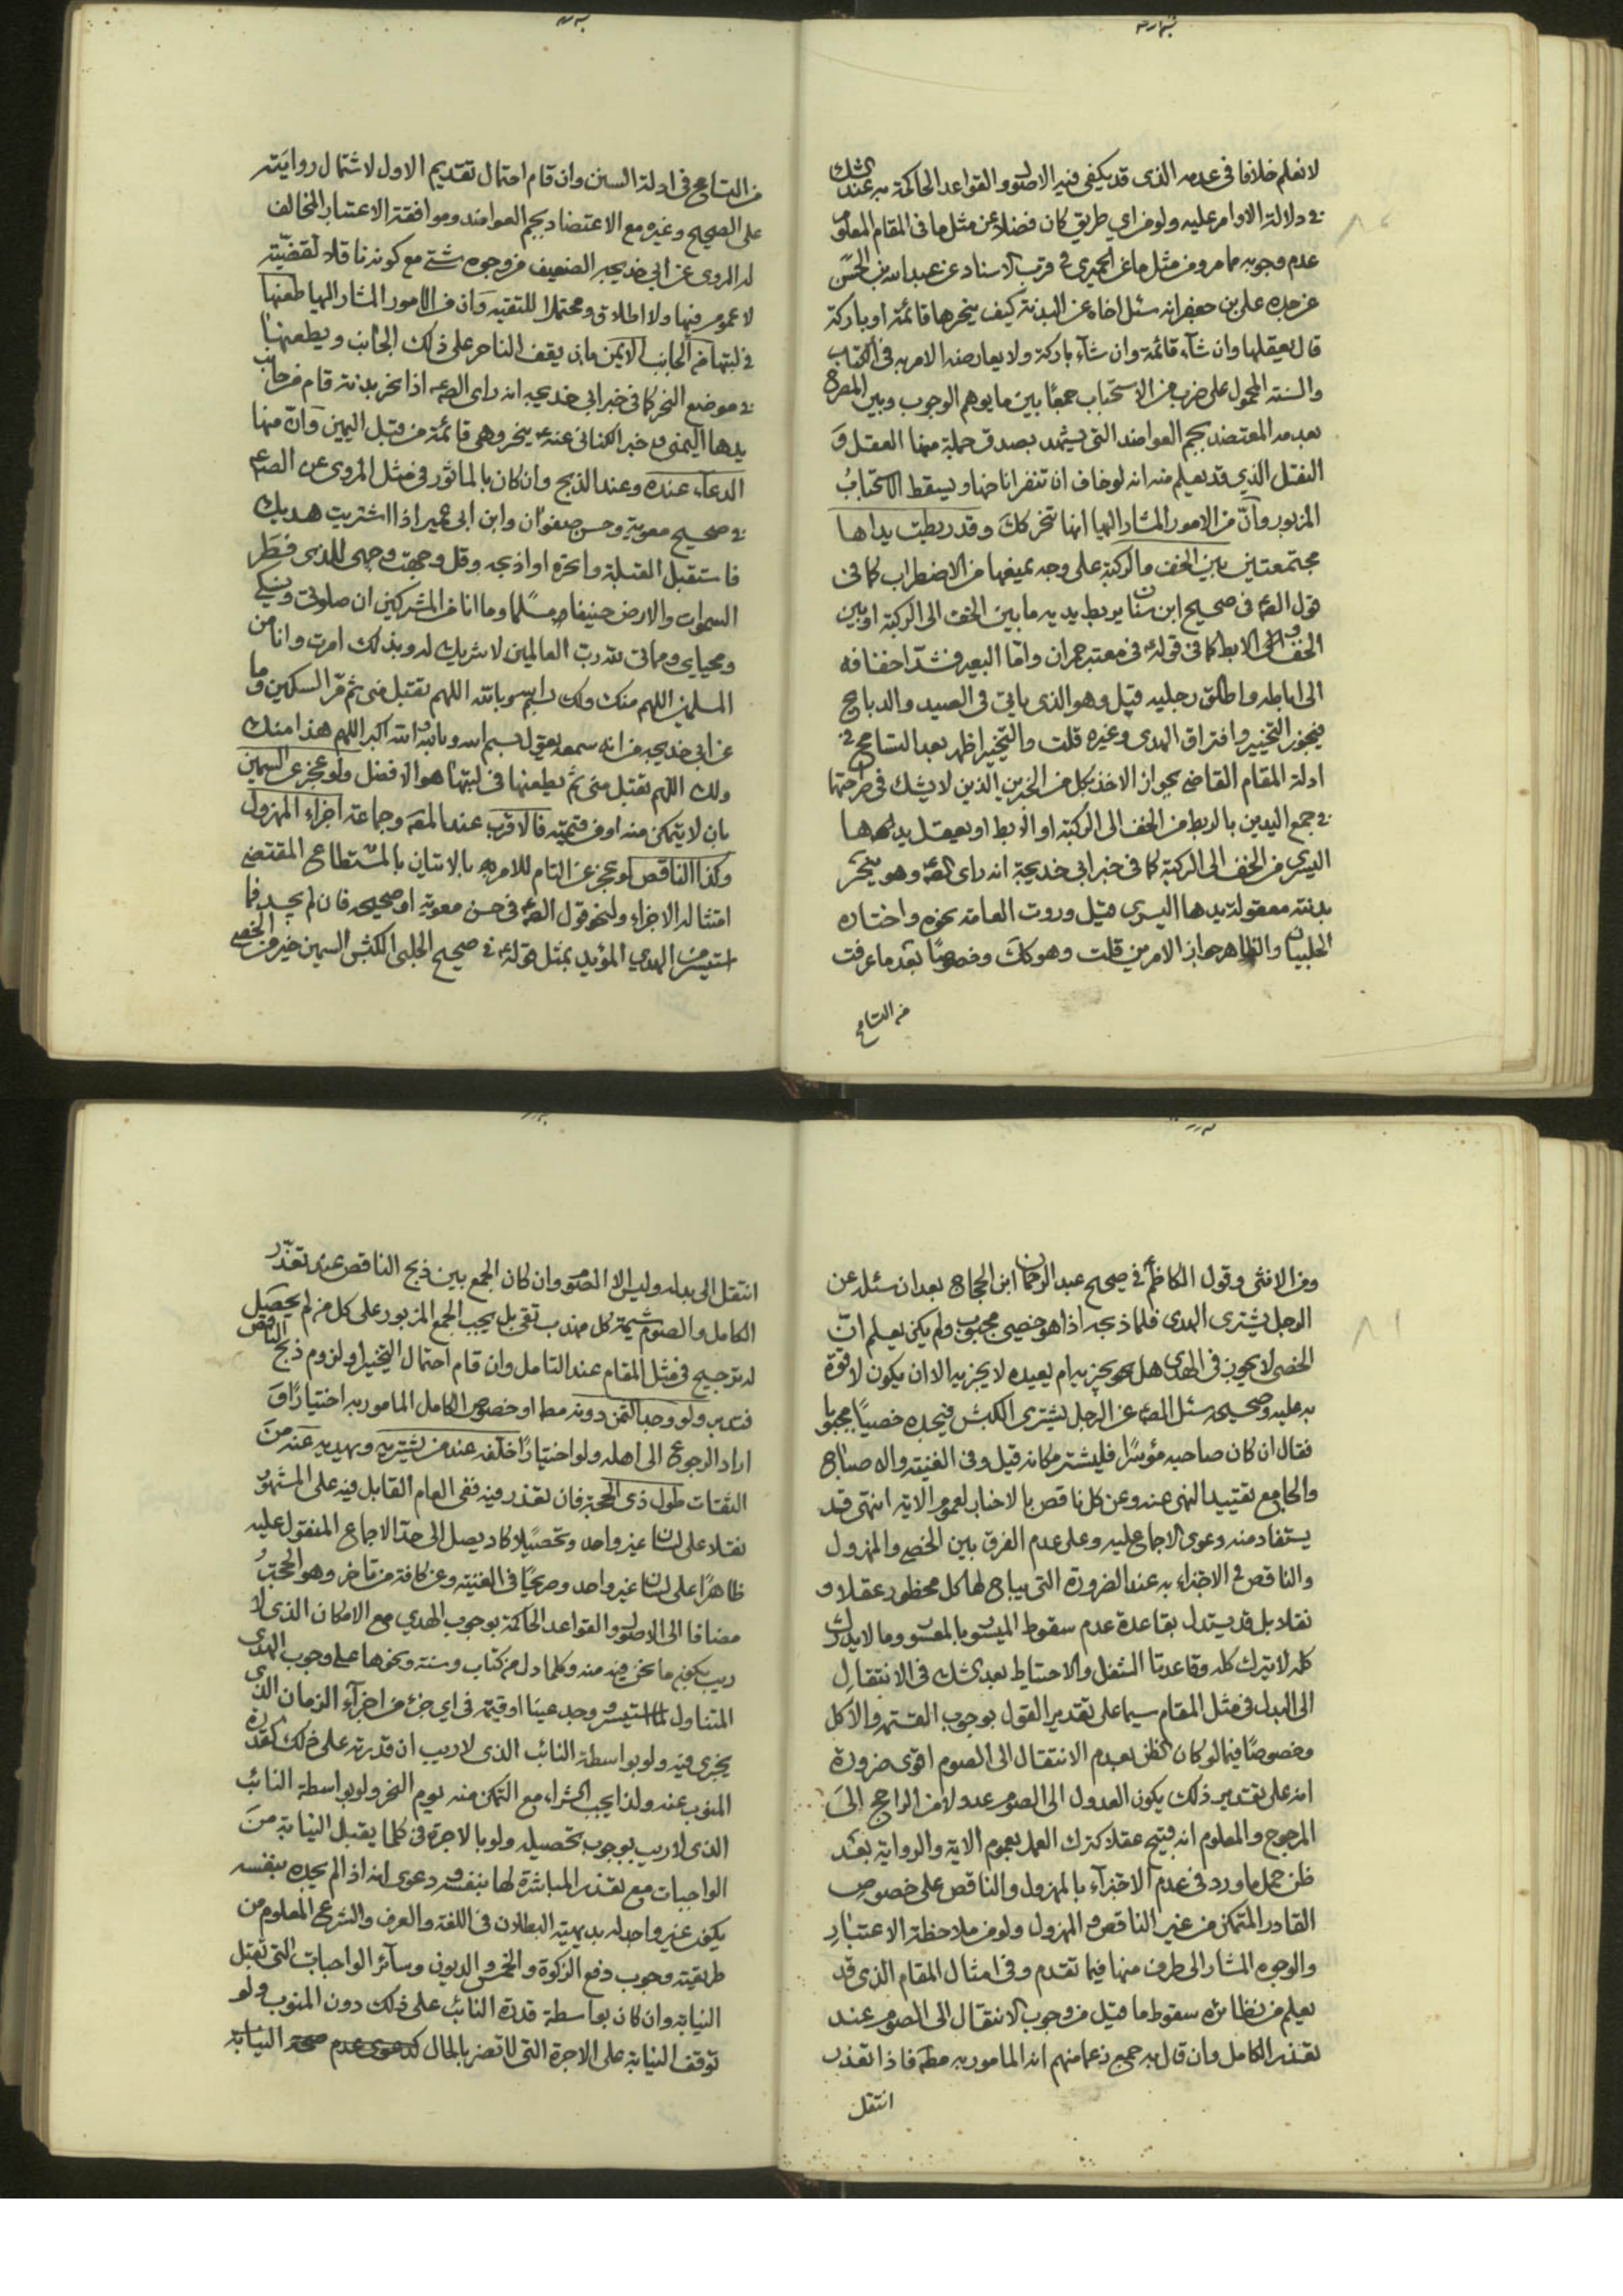 لا نعلم خلافا في عدمه الذى قد يكفى فيه الاصل والقواعد الحاكمة به عند الشك
في دلالة الاوامر عليه ولو من اي طريق كان فضلا عن مثل ما في المقام المعلوم
عدم وجوبه مما مر ومن مثل ما عن الحميرى في قرب الاسناد عن عبد الله بن الحسن
عن جده على بن جعفر انه سئل اخاه عن البدنة كيف ينحرها قائمة او باركة
قال يعقلها وان شاء قائمة وان شاء باركة ولا يعارضه الامر به في الكتاب
والسنة المحمول على ضرب من الاستحباب جمعا بين ما يوهم الوجوب وبين المصرح
بعدمه المعتضد بجم العواضد التى يشهد بصدق جملة منها العقل و
النقل الذي قد يعلم منه انه لو خاف ان تنفر اناخها ويسقط الاستحباب
المزبور وان من الامور المشار اليها انها تنحر كك وقد ربطت يداها
مجتمعتين ما بين الخف والركبة على وجه يمنعها من الاضطراب كما في
قول الصم في صحيح ابن سنان يربط يديه ما بين الخف الى الركبة او بين
الخف الى الابط كما في قوله في معتبر حمران واما البعير فشد اخفافه
الى اباطه واطلق رجليه قيل وهو الذى ياتى في الصيد والذباح
فيجوز التخيير وافتراق الهدى وغيره قلت والتخيير اظهر بعد التسامح في
ادلة المقام القاضى بجواز الاخذ بكل من الخبرين الذين لا يشك في صراحتها
في جمع اليدين بالربط من الخف الى الركبة او الابط او يعقل يدها
اليسرى من الخف الى الركبة كما في خبر ابى خديجة انه راى الصم وهو ينحر
بدنته معقولة يدها اليسرى قيل وروت العامة نحوه واختاره
الحلبيان والظاهر جواز الامرين قلت وهو كك وخصوصا بعد ما عرفت
من التسامح
من التسامح في ادلة السنن وان قام احتمال تقديم الاول لاشتمال روايته
على الصحيح وغيره مع الاعتضاد بجم العواضد وموافقة الاعتبار المخالف
له المروى عن ابي خديجه الضعيف من وجوه شتى مع كونه ناقلا لقضية
لا عموم فيها ولا اطلاق ومحتملا للتقيه وان من الامور المشار اليها طعنها
في لبتها من الجانب الايمن بان يقف الناحر على ذلك الجانب ويطعنها
في موضع النحر كما في خبر ابي خديجه انه راى الصم اذا نحر بدنة قام من جانب
يدها اليمنى وخبر الكنانى عنه ينحر وهى قائمة من قبل اليمين وان منها
الدعاء عنده وعند الذبح وان كان بالماثور في مثل المروى عن الصم
في صحيح معوية وحسن صفوان وابن ابى عمير اذا اشتريت هديك
فاستقبل القبلة وانحره او اذبحه وقل وجهت وجهى للذى فطر
السموات والارض حنيفا مسلما وما انا من المشركين ان صلوتى ونسكى
ومحياي ومماتى لله رب العالمين لا شريك له وبذلك امرت وانا من
المسلمين اللهم منك ولك بسم الله وبالله اللهم تقبل منى ثم مر السكين وما
عن ابي خديجه من انه سمعه يقول بسم الله وبالله والله اكبر اللهم هذا منك
ولك اللهم تقبل منى ثم يطعنها في لبتها هو الافضل ولو عجز عن السمين
بان لا يتمكن منه او من قيمته فالاقرب عند المصم وجماعة اجزاء المهزول
وكذا الناقص لو عجز عن التام للامر به بالاتيان بالمستطاع المقتضى
امتثاله الاجزاء ولنحو قول الصم في حسن معوية او صحيحه فان لم يجد فما
استيسر من الهدي المؤيد بمثل قوله في صحيح الحلبى الكبش السمين خير من الخصى
ومن الانثى وقول الكاظم في صحيح عبد الرحمان ابن الحجاج بعد ان سئل عن
الرجل يشترى الهدى فلما ذبحه اذا هو خصى مجبوب ولم يكن يعلم ان
الخصى لا يجوز في الهدى هل يجزيه ام يعيده لا يجزيه الا ان يكون لا قوة
به عليه وصحيحه سئل الصم عن الرجل يشترى الكبش فيجده خصيا مجبوبا
فقال ان كان صاحبه مؤسرا فليشتر مكانه قيل وفى الغنية والاصباح
والجامع تقييد النهى عنه وعن كل ناقص بالاختيار لعموم الاية انتهى قد
يستفاد منه دعوى الاجماع عليه وعلى عدم الفرق بين الخصى والمهزول
والناقص في الاجتزاء به عند الضرورة التى يباح لها كل محظور عقلا و
نقلا بل قد يستدل بقاعدة عدم سقوط الميسور بالمعسور وما لا يدرك
كله لا يترك كله وقاعدتا الشغل والاحتياط بعد الشك في الانتقال
الى البدل في مثل المقام سيما على تقدير القول بوجوب القسمة والاكل
وخصوصا فيما لو كان الظن بعدم الانتقال الى الصوم اقوى ضرورة
انه على تقدير ذلك يكون العدول الى الصوم عدولا من الراجح الى
المرجوح والمعلوم انه قبيح عقلا كترك العمل بعموم الاية والرواية بعد
ظن حمل ما ورد في عدم الاجتزاء بالمهزول والناقص على خصوص
القادر المتمكن من غير الناقص والمهزول ولو من ملاحظة الاعتبار
والوجوه المشار الى طرف منها فيما تقدم وفى امثال المقام الذى قد
يعلم من نظائره سقوط ما قيل من وجوب الانتقال الى الصوم عند
تعذر الكامل وان قال به جمع زعما منهم انه المامور به مطم فاذا تعذر
انتقل
انتقل الى بدله وليس الا الصوم وان كان الجمع بين ذبح الناقص عند تعذر
الكامل والصوم شيمة كل مهذب تقى بل يجب الجمع المزبور على كل من لم يحصل
له ترجيح في مثل المقام عند التامل وان قام احتمال التخيير او لزوم ذبح الناقص
فتدبر ولو وجد الثمن دونه مطم او خصوص الكامل المامور به اختيارا و
اراد الرجوع الى اهله ولو اختيارا خلفه عند من يشتريه ويهديه عنه من
الثقات طول ذى الحجة فان تعذر فيه ففى العام القابل فيه على المشهور
نقلا على لسان غير واحد وتحصيلا كاد يصل الى حد الاجماع المنقول عليه
ظاهرا على لسان غير واحد وصريحا في الغنية وعن كافة من تاخر وهو الحجة
مضافا الى الاصل والقواعد الحاكمة بوجوب الهدي مع الامكان الذى لا
ريب بكون ما نحن فيه منه وكلما دل من كتاب وسنة ونحوها على وجوب الهدى
المتناول لما استيسر ووجد عينا او قيمة في اي جزء من اجزاء الزمان الذى
يجزى فيه ولو بواسطة النائب الذى لا ريب ان قدرته على ذلك كقدرة
المنوب عنه ولذا يجب الشراء مع التمكن منه يوم النحر ولو بواسطة النائب
الذى لا ريب بوجوب تحصيله ولو بالاجرة في كلما يقبل النيابة من
الواجبات مع تعذر المباشرة لها بنفسه ودعوى انه اذا لم يجده بنفسه
يكون غير واجد له بديهية البطلان في اللغة والعرف والشرع المعلوم من
طريقته وجوب دفع الزكوة والخمس والديون وسائر الواجبات التى تقبل
النيابة وان كان بواسطة قدرة النائب على ذلك دون المنوب ولو
توقف النيابة على الاجرة التى لا تضر بالحال كدعوى عدم صحة النيابة